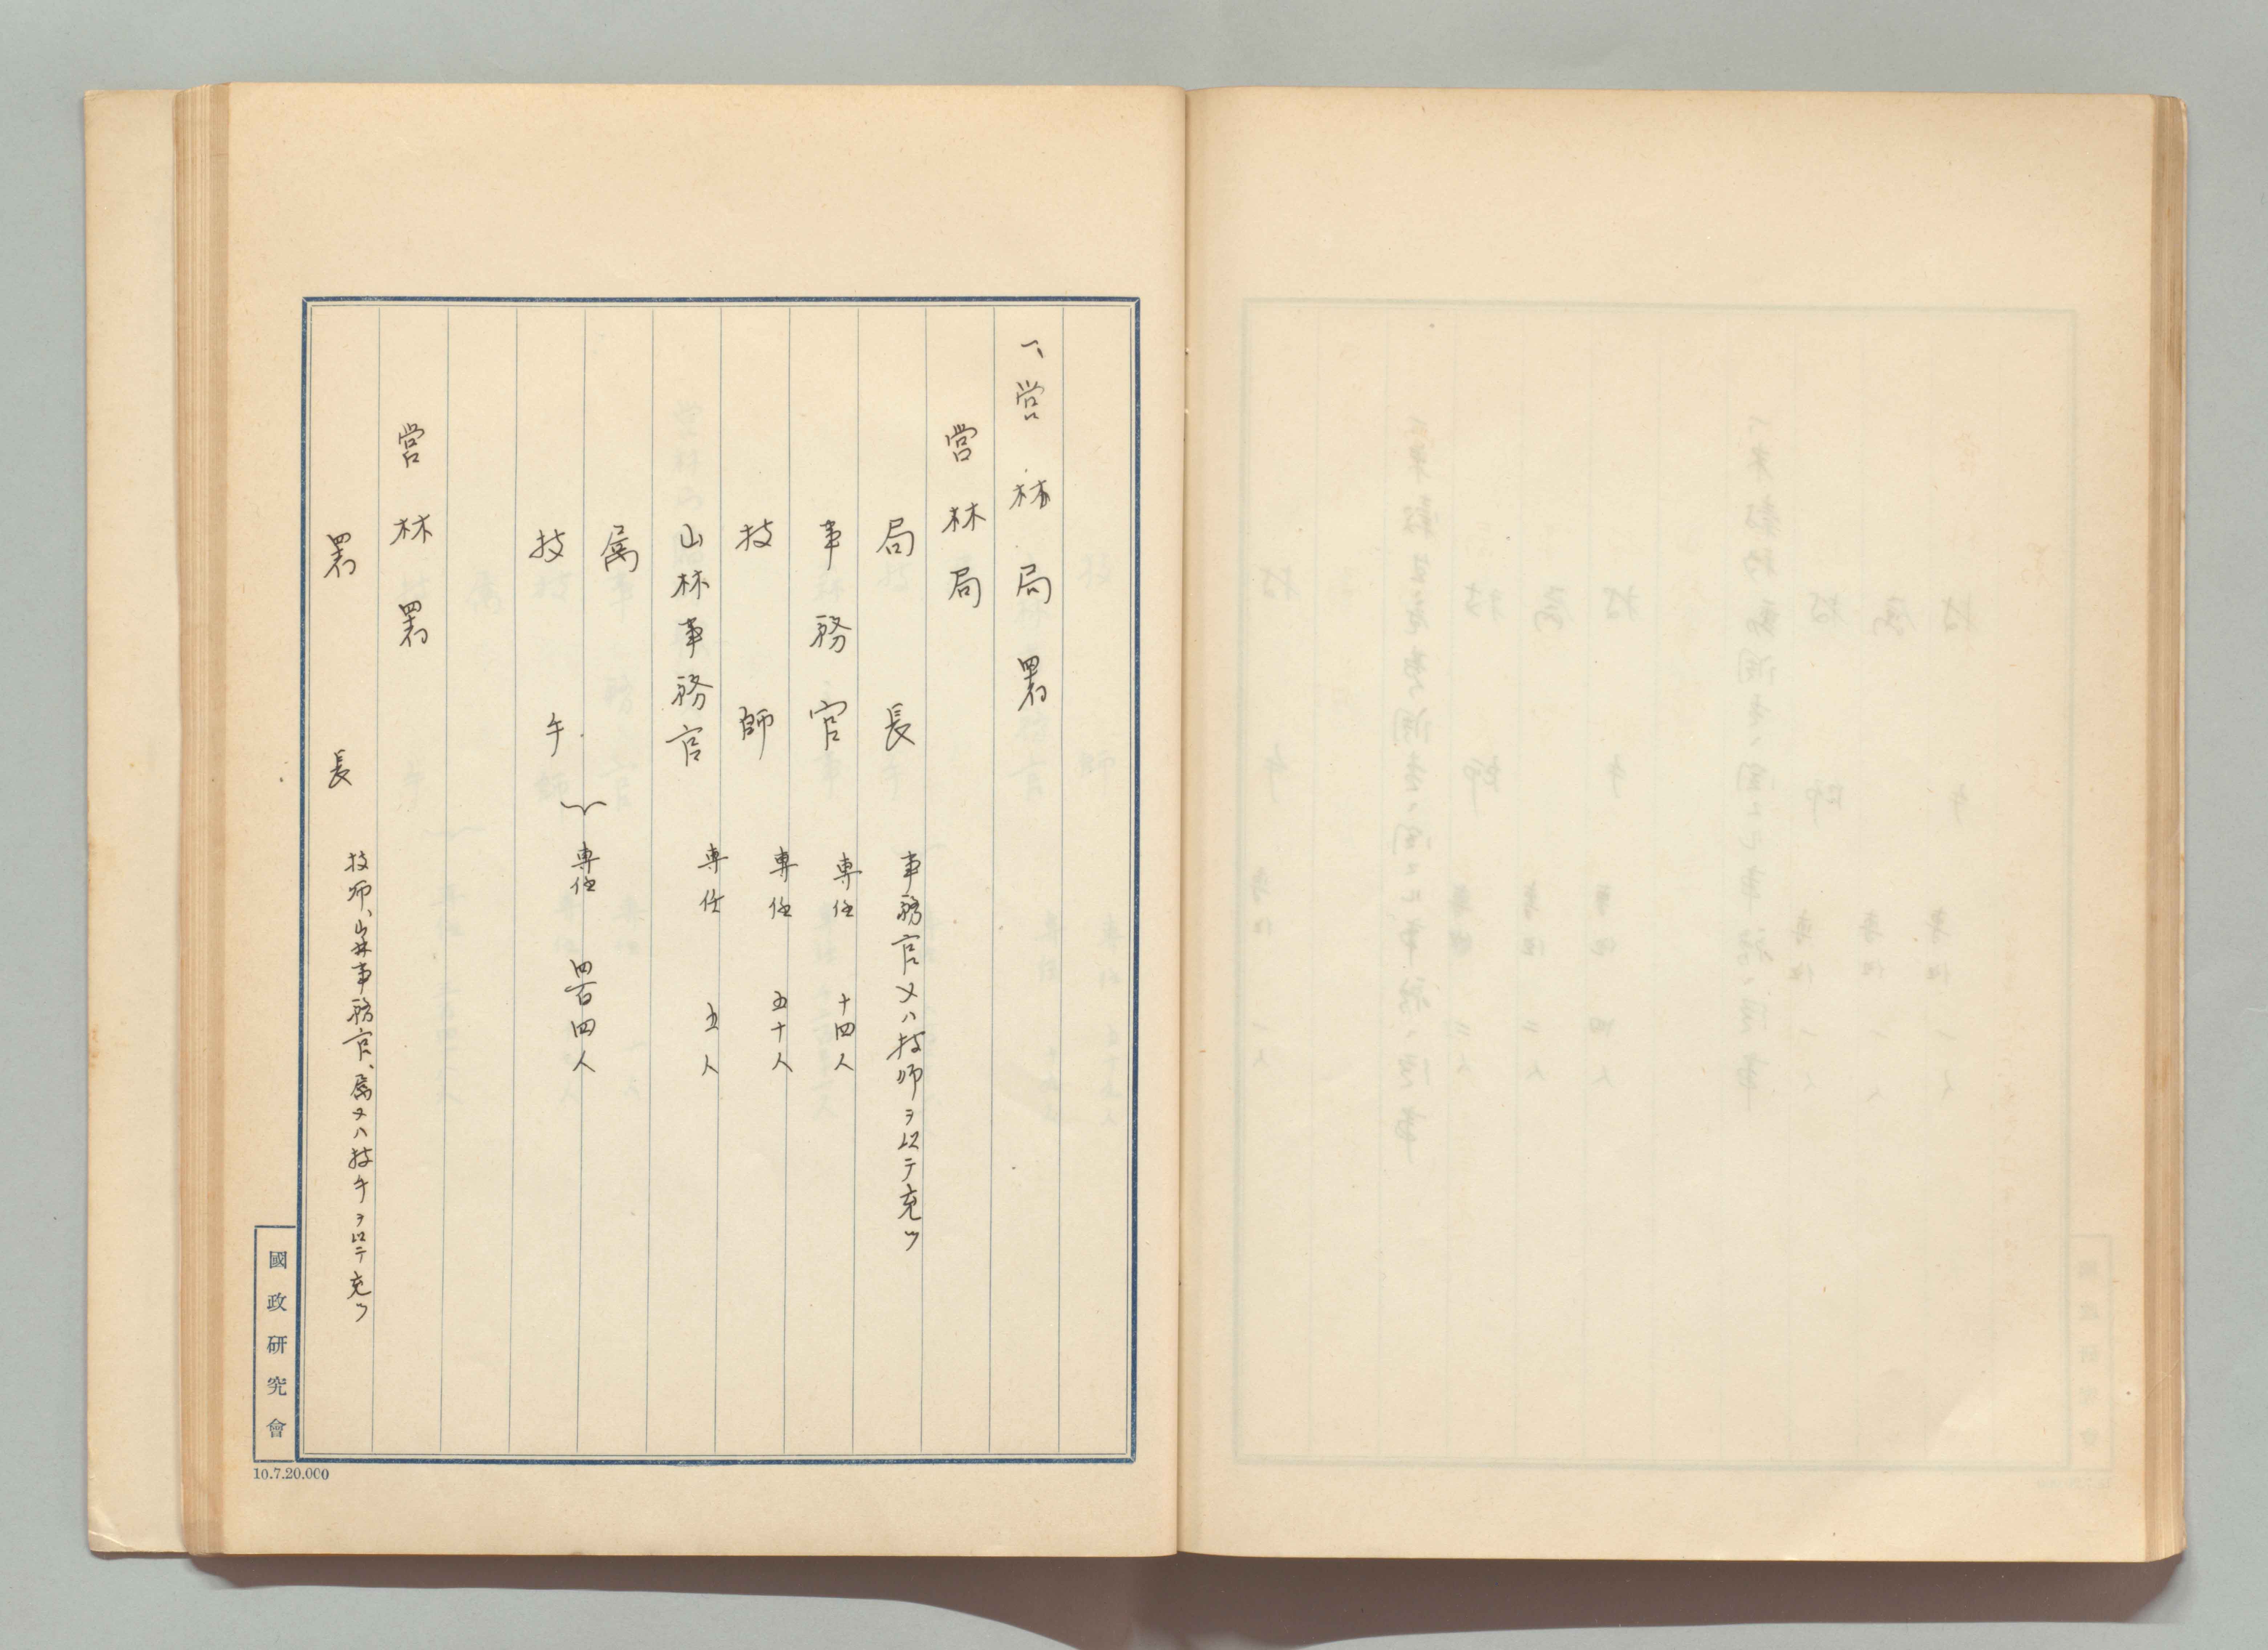 一、営林局署
営林局
局長 事務官又ハ技師ヲ以テ充ツ
事務官 専任 十四人
技師 専任 五十人
山林事務官 専任 五人
属
技手 専任 四百四人
営林署
署長 技師、山林事務官、属又ハ技手ヲ以テ充ツ
國政研究會
10.7.20.000